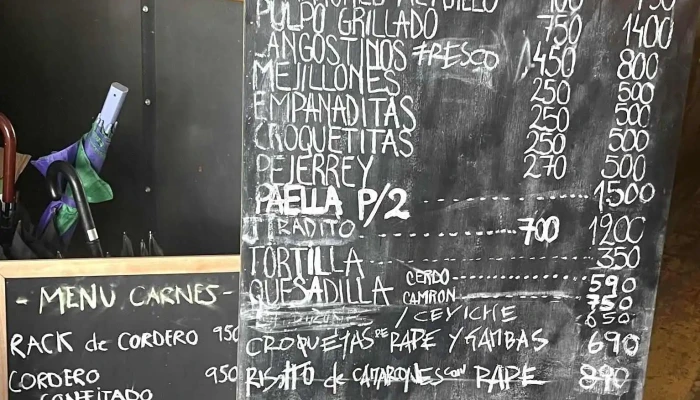 PULPO GRILLADO 750 1400
LANGOSTINOS FRESCO 450 800
MEJILLONES 250 500
EMPANADITAS 250 500
CROQUETITAS 250 500
PEJERREY 270 500
PAELLA P/2 1500
TIRADITO 700 1200
TORTILLA 350
QUESADILLA CERDO 590
CAMRON 750
/ CEVICHE 650
CROQUETAS DE RAPE Y GAMBAS 690
RISOTTO de CAMARONES con RAPE 890
- MENU CARNES -
RACK de CORDERO 950
CORDERO 950
CONFITADO